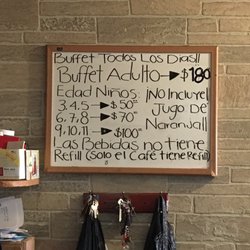 Buffet Todos Los Dias!!
Buffet Adulto → $180
Edad Niños: ¡No Incluye
3,4,5 → $50⁰⁰ Jugo De
6,7,8 → $70⁰⁰ Naranja!!
9,10,11 → $100⁰⁰
Las Bebidas no Tiene
Refill (Solo el Café Tiene Refill)